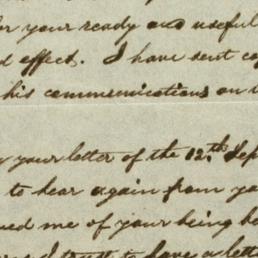 your ready and useful
effect. I have sent
his communications on
your letter of the 12th Sep
to hear again from yo
me of your being
I trust to have a lette